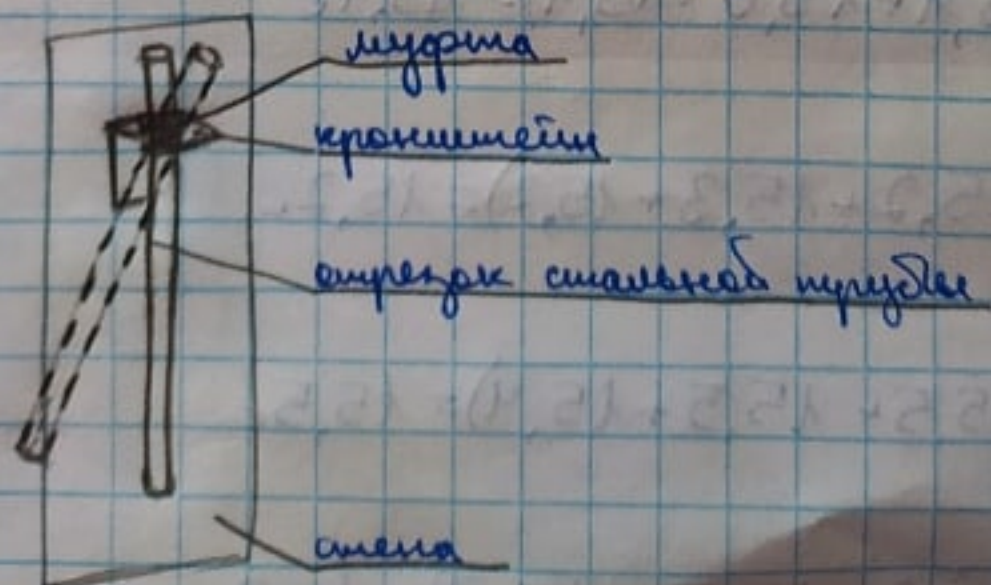 муфта
кронштейн
отрезок стальной трубы
стена